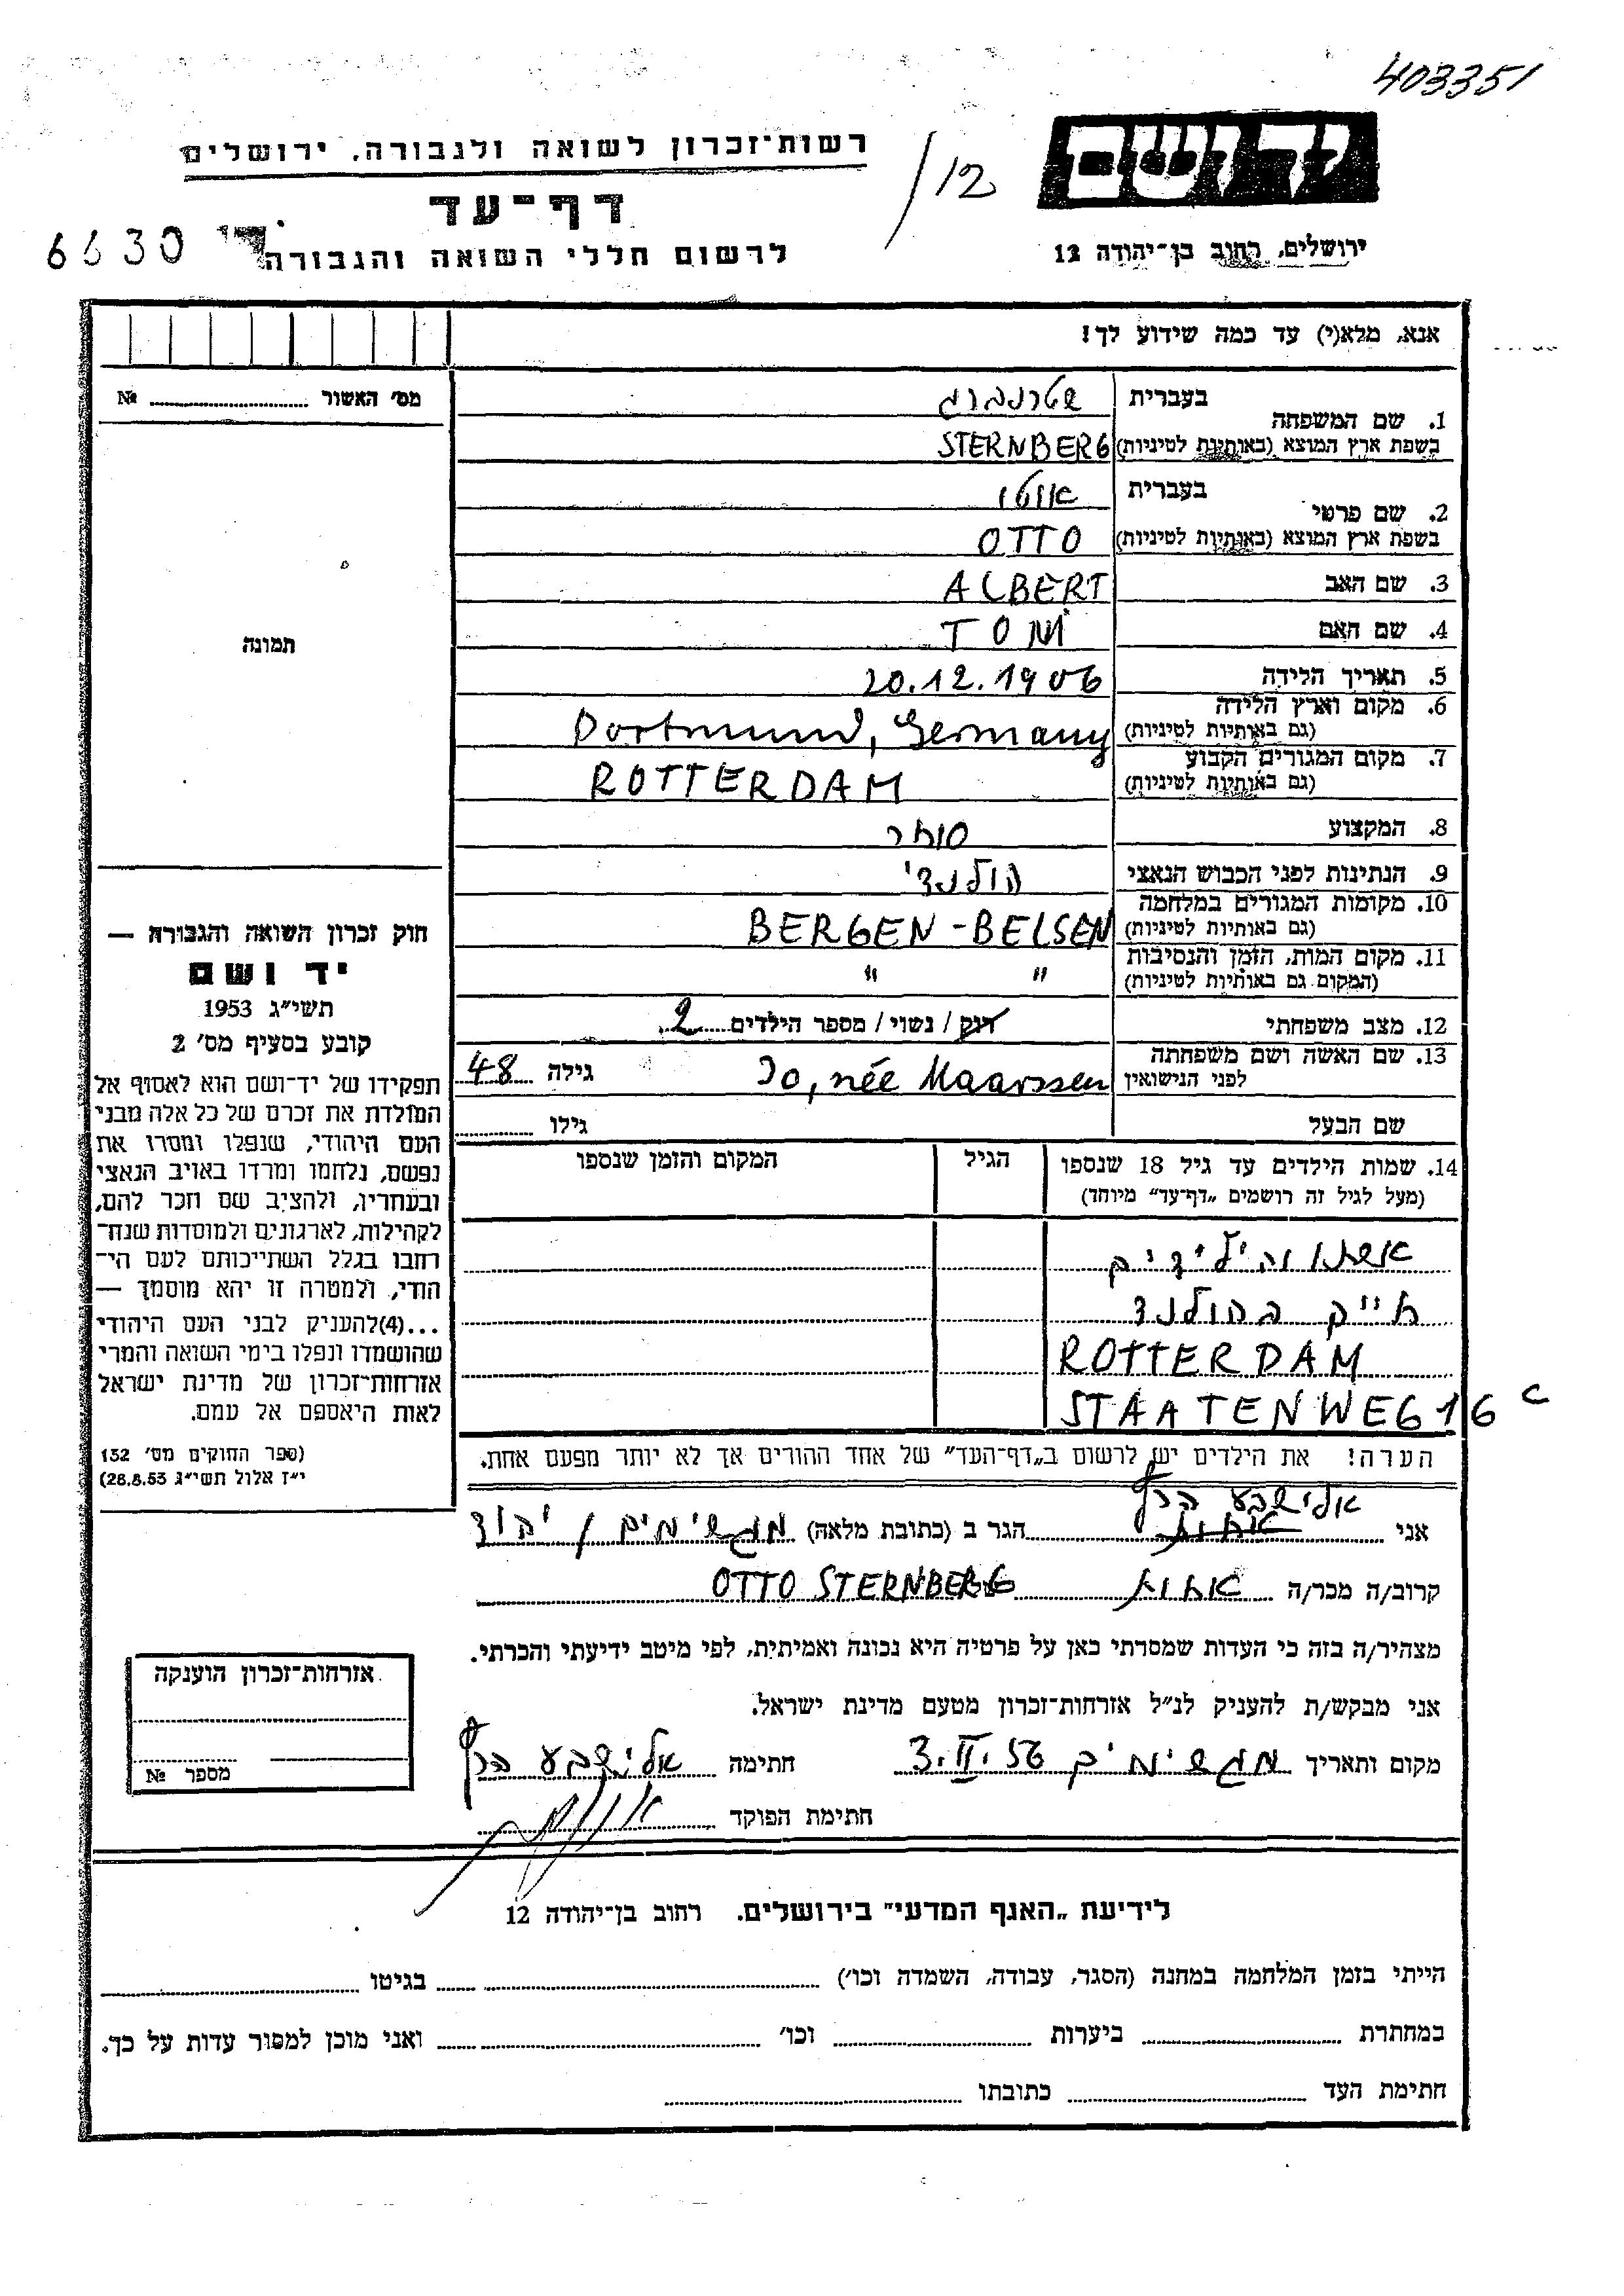 403351
יד ושם
רשות־זכרון לשואה ולגבורה, ירושלים
/12
דף־עד
לרשום חללי השואה והגבורה
6630
ירושלים, רחוב בן־יהודה 12
אנא, מלא(י) עד כמה שידוע לך!
מס' האשור № ........
1. שם המשפחה
בעברית שטרנברג
בשפת ארץ המוצא (באותיות לטיניות) STERNBERG
2. שם פרטי
בעברית אוטו
בשפת ארץ המוצא (באותיות לטיניות) OTTO
3. שם האב ALBERT
4. שם האם TONI
תמונה
5. תאריך הלידה 20.12.1906
6. מקום וארץ הלידה
(גם באותיות לטיניות) Dortmund, Germany
7. מקום המגורים הקבוע
(גם באותיות לטיניות) ROTTERDAM
8. המקצוע סוחר
9. הנתינות לפני הכבוש הנאצי הולנדי
10. מקומות המגורים במלחמה
(גם באותיות לטיניות) BERGEN-BELSEN
11. מקום המות, הזמן והנסיבות
(המקום גם באותיות לטיניות) " "
12. מצב משפחתי רוק / נשוי / מספר הילדים 2
13. שם האשה ושם משפחתה
לפני הנישואין Jo, née Maarssen גילה 48
שם הבעל גילו ........
14. שמות הילדים עד גיל 18 שנספו
(מעל לגיל זה רושמים „דף־עד" מיוחד)
הגיל
המקום והזמן שנספו
אשתו והילדים
חיים בהולנד
ROTTERDAM
STAATENWEG 16 c
הערה! את הילדים יש לרשום ב„דף־העד" של אחד ההורים אך לא יותר מפעם אחת.
חוק זכרון השואה והגבורה —
יד ושם
תשי״ג 1953
קובע בסעיף מס' 2
תפקידו של יד־ושם הוא לאסוף אל
המולדת את זכרם של כל אלה מבני
העם היהודי, שנפלו ומסרו את
נפשם, נלחמו ומרדו באויב הנאצי
ובעוזריו, ולהציב שם וזכר להם,
לקהילות, לארגונים ולמוסדות שנח־
רבו בגלל השתייכותם לעם הי־
הודי, ולמטרה זו יהא מוסמך —
...(4) להעניק לבני העם היהודי
שהושמדו ונפלו בימי השואה והמרי
אזרחות־זכרון של מדינת ישראל
לאות היאספם אל עמם.
(ספר החוקים מס' 132
י״ז אלול תשי״ג 28.8.53)
אני אלישבע הרץ אחות הגר ב (כתובת מלאה) מגשימים / יהוד
קרוב/ה מכר/ה אחות OTTO STERNBERG
מצהיר/ה בזה כי העדות שמסרתי כאן על פרטיה היא נכונה ואמיתית, לפי מיטב ידיעתי והכרתי.
אני מבקש/ת להעניק לנ״ל אזרחות־זכרון מטעם מדינת ישראל.
מקום ותאריך מגשימים 3.II.56 חתימה אלישבע הרץ
חתימת הפוקד
אזרחות־זכרון הוענקה
מספר №
לידיעת „האגף המדעי" בירושלים. רחוב בן־יהודה 12
הייתי בזמן המלחמה במחנה (הסגר, עבודה, השמדה וכו') ........ בגיטו ........
במחתרת ........ ביערות ........ וכו' ........ ואני מוכן למסור עדות על כך.
חתימת העד ........ כתובתו ........